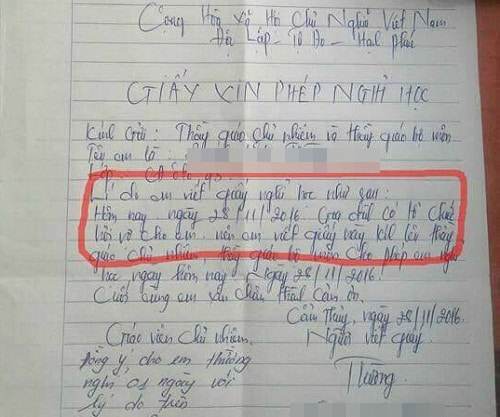 Cộng Hòa Xã Hội Chủ Nghĩa Việt Nam
Độc Lập - Tự Do - Hạnh phúc
GIẤY XIN PHÉP NGHỈ HỌC
Kính Gửi : Thầy giáo chủ nhiệm và thầy giáo bộ môn
Tên em là :
Lí do em viết giấy nghỉ học như sau :
Hôm nay ngày 28/11/2016. Gia đình có tổ chức
cưới vợ cho em nên em viết giấy này kil lên thầy
giáo chủ nhiệm thầy giáo bộ môn cho phép em nghỉ
học ngày hôm nay Ngày 28/11/2016.
Cuối cùng em xin chân thành cảm ơn.
Cẩm Thủy, ngày 28/11/2016
Giáo viên chủ nhiệm.
Người viết giấy
Đồng ý cho em Thường
nghỉ 01 ngày với
lý do trên
Thường